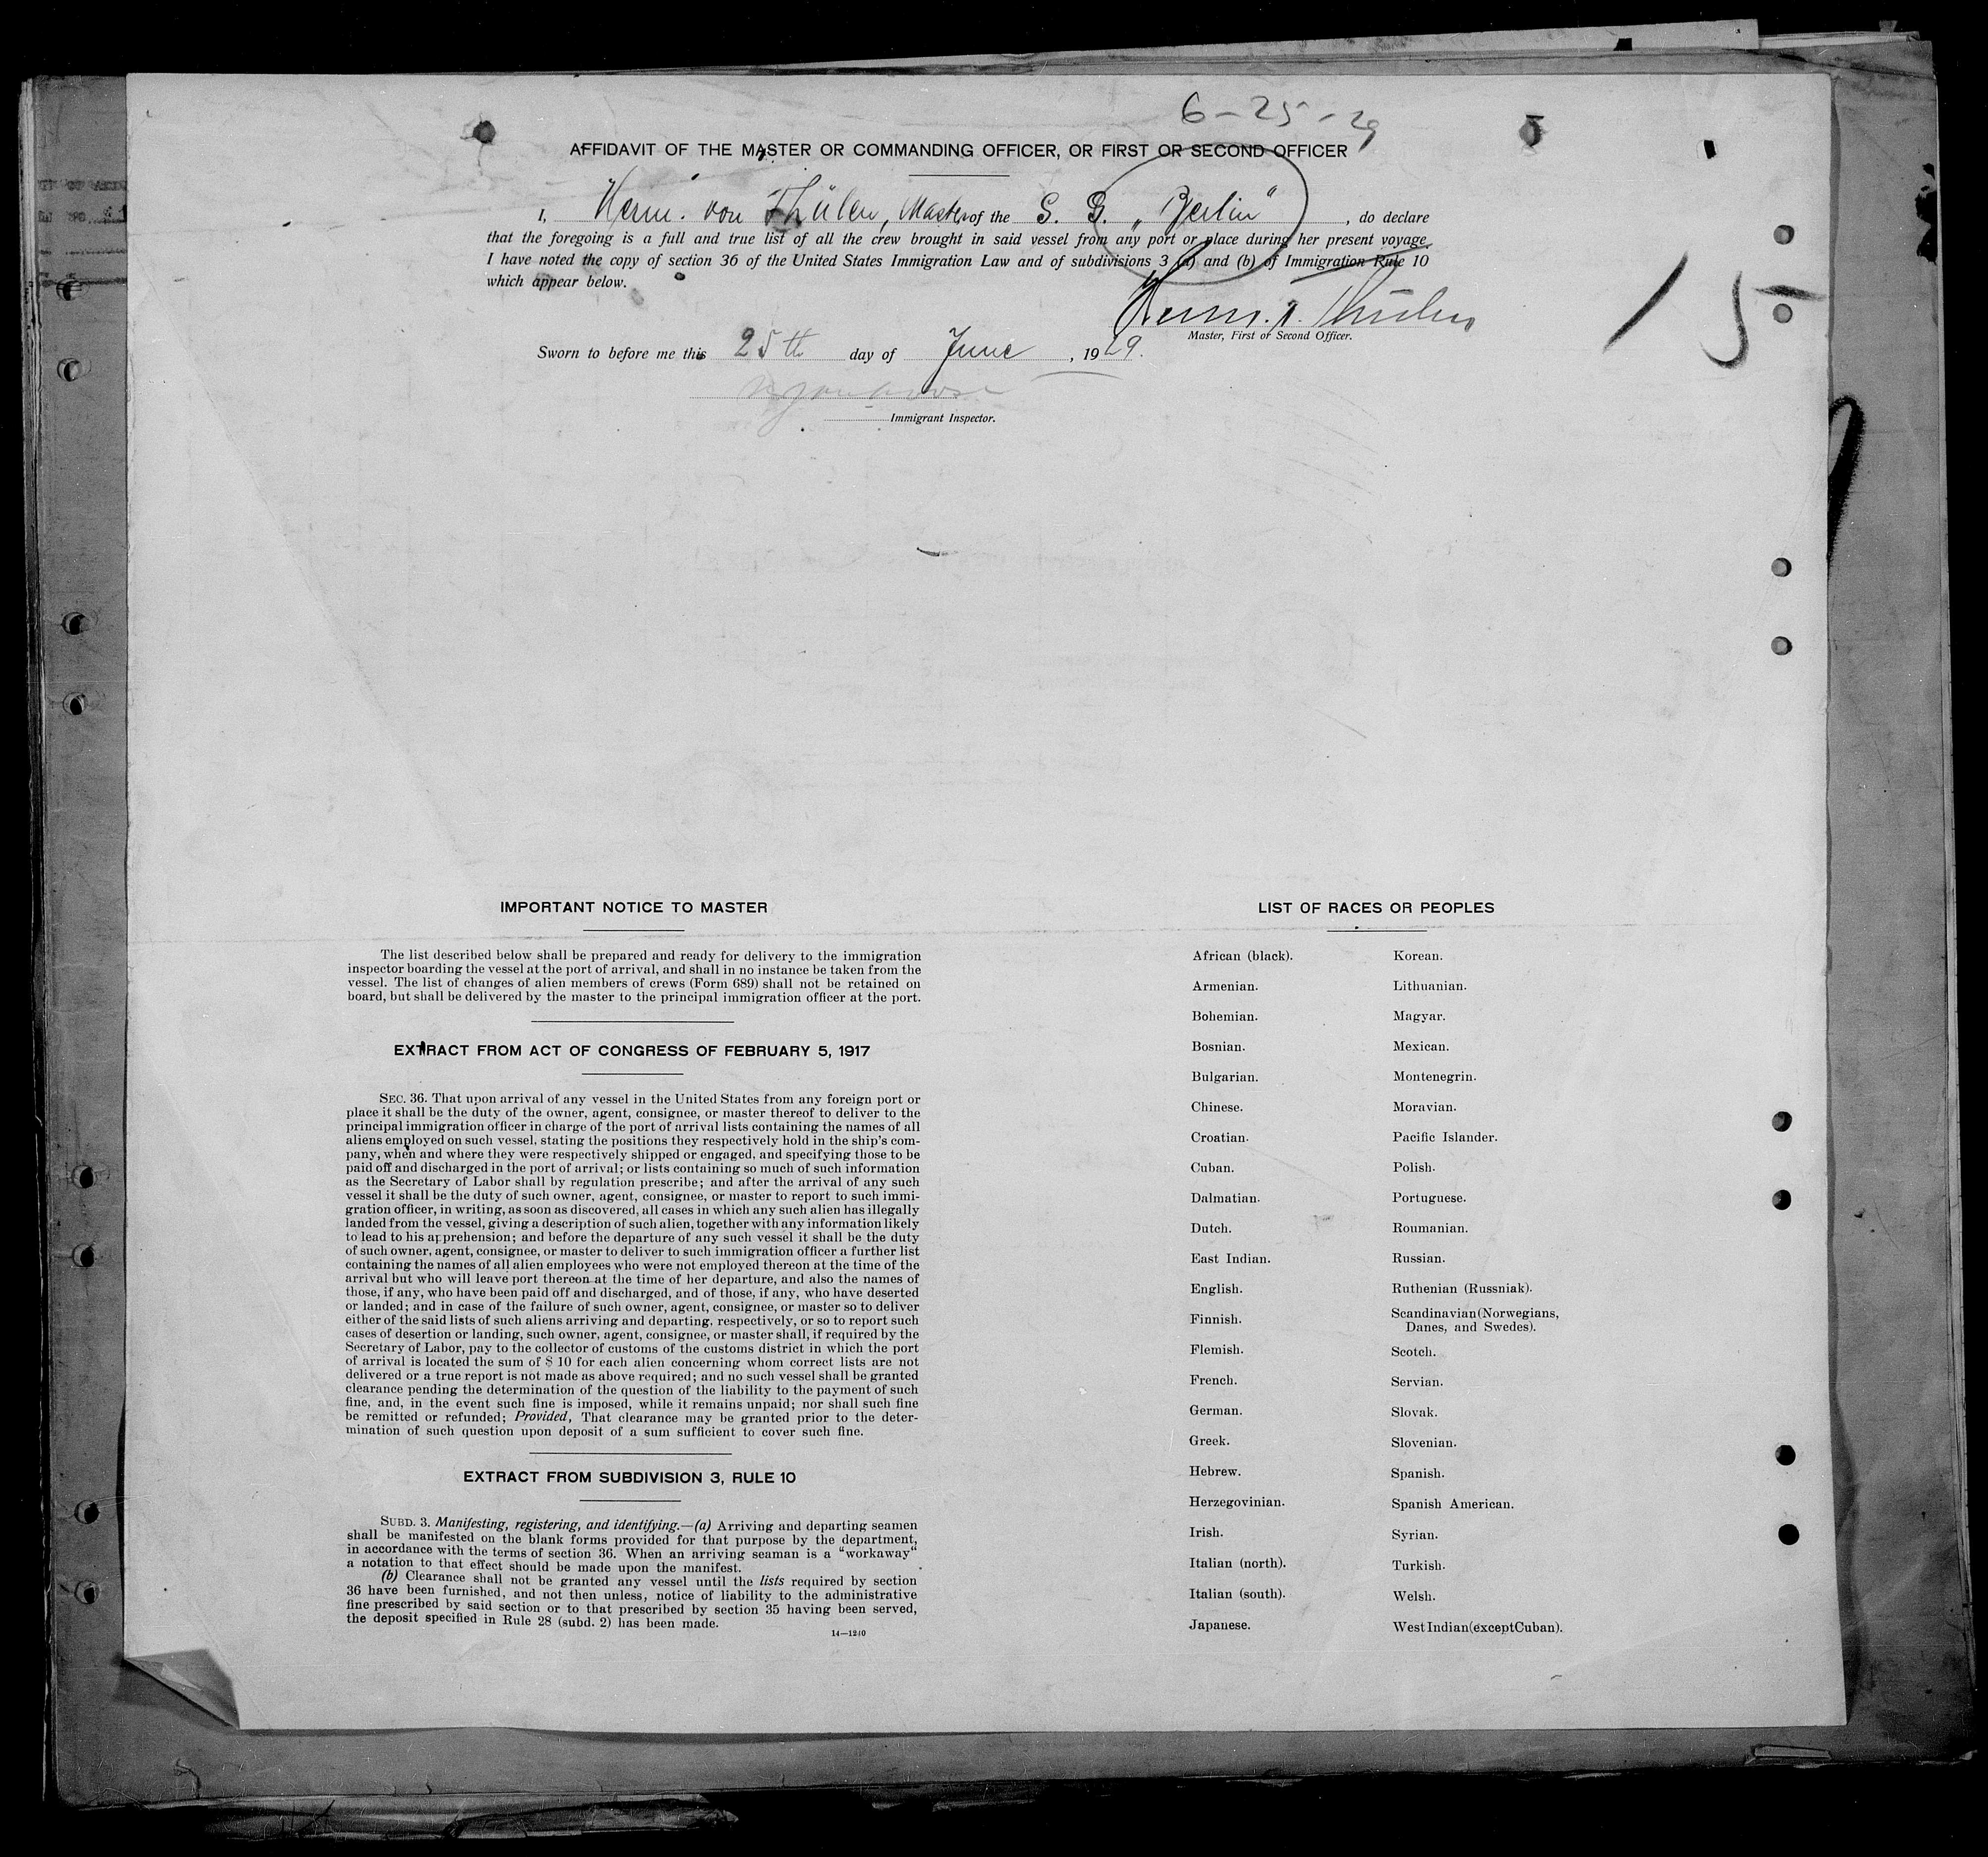 6-25-29
AFFIDAVIT OF THE MASTER OR COMMANDING OFFICER, OR FIRST OR SECOND OFFICER
I, Herm. von Thülen, Master of the S. S. „Berlin“, do declare
that the foregoing is a full and true list of all the crew brought in said vessel from any port or place during her present voyage.
I have noted the copy of section 36 of the United States Immigration Law and of subdivisions 3 (a) and (b) of Immigration Rule 10
which appear below.
Herm. v. Thülen
Master, First or Second Officer.
15
Sworn to before me this 25th day of June, 1929.
Immigrant Inspector.
IMPORTANT NOTICE TO MASTER
The list described below shall be prepared and ready for delivery to the immigration
inspector boarding the vessel at the port of arrival, and shall in no instance be taken from the
vessel. The list of changes of alien members of crews (Form 689) shall not be retained on
board, but shall be delivered by the master to the principal immigration officer at the port.
EXTRACT FROM ACT OF CONGRESS OF FEBRUARY 5, 1917
SEC. 36. That upon arrival of any vessel in the United States from any foreign port or
place it shall be the duty of the owner, agent, consignee, or master thereof to deliver to the
principal immigration officer in charge of the port of arrival lists containing the names of all
aliens employed on such vessel, stating the positions they respectively hold in the ship's com-
pany, when and where they were respectively shipped or engaged, and specifying those to be
paid off and discharged in the port of arrival; or lists containing so much of such information
as the Secretary of Labor shall by regulation prescribe; and after the arrival of any such
vessel it shall be the duty of such owner, agent, consignee, or master to report to such immi-
gration officer, in writing, as soon as discovered, all cases in which any such alien has illegally
landed from the vessel, giving a description of such alien, together with any information likely
to lead to his apprehension; and before the departure of any such vessel it shall be the duty
of such owner, agent, consignee, or master to deliver to such immigration officer a further list
containing the names of all alien employees who were not employed thereon at the time of the
arrival but who will leave port thereon at the time of her departure, and also the names of
those, if any, who have been paid off and discharged, and of those, if any, who have deserted
or landed; and in case of the failure of such owner, agent, consignee, or master so to deliver
either of the said lists of such aliens arriving and departing, respectively, or so to report such
cases of desertion or landing, such owner, agent, consignee, or master shall, if required by the
Secretary of Labor, pay to the collector of customs of the customs district in which the port
of arrival is located the sum of $ 10 for each alien concerning whom correct lists are not
delivered or a true report is not made as above required; and no such vessel shall be granted
clearance pending the determination of the question of the liability to the payment of such
fine, and, in the event such fine is imposed, while it remains unpaid; nor shall such fine
be remitted or refunded; Provided, That clearance may be granted prior to the deter-
mination of such question upon deposit of a sum sufficient to cover such fine.
EXTRACT FROM SUBDIVISION 3, RULE 10
SUBD. 3. Manifesting, registering, and identifying.—(a) Arriving and departing seamen
shall be manifested on the blank forms provided for that purpose by the department,
in accordance with the terms of section 36. When an arriving seaman is a “workaway“
a notation to that effect should be made upon the manifest.
(b) Clearance shall not be granted any vessel until the lists required by section
36 have been furnished, and not then unless, notice of liability to the administrative
fine prescribed by said section or to that prescribed by section 35 having been served,
the deposit specified in Rule 28 (subd. 2) has been made.
14—1240
LIST OF RACES OR PEOPLES
African (black).
Armenian.
Bohemian.
Bosnian.
Bulgarian.
Chinese.
Croatian.
Cuban.
Dalmatian.
Dutch.
East Indian.
English.
Finnish.
Flemish.
French.
German.
Greek.
Hebrew.
Herzegovinian.
Irish.
Italian (north).
Italian (south).
Japanese.
Korean.
Lithuanian.
Magyar.
Mexican.
Montenegrin.
Moravian.
Pacific Islander.
Polish.
Portuguese.
Roumanian.
Russian.
Ruthenian (Russniak).
Scandinavian(Norwegians,
Danes, and Swedes).
Scotch.
Servian.
Slovak.
Slovenian.
Spanish.
Spanish American.
Syrian.
Turkish.
Welsh.
West Indian(exceptCuban).